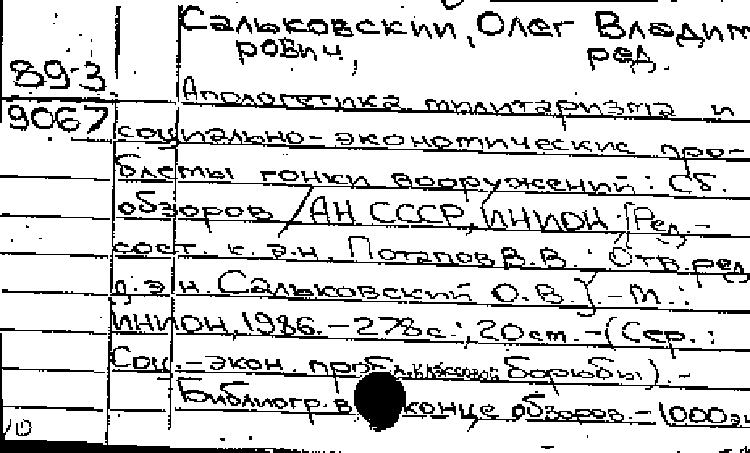 Сальковский, Олег Владим
рович, ред.
89-3
9067
Апологетика милитаризма и
социально-экономические про-
блемы гонки вооружений: Сб.
обзоров / АН СССР, ИНИОН; [Ред.-
сост. к.э.н. Потапов В.В.; Отв. ред.
д.э.н. Сальковский О.В.] - М.:
ИНИОН, 1986. - 278 с.; 20 см. - (Сер.:
Соц.-экон. пробл. классовой борьбы). -
Библиогр. в конце обзоров. - 1000 эк